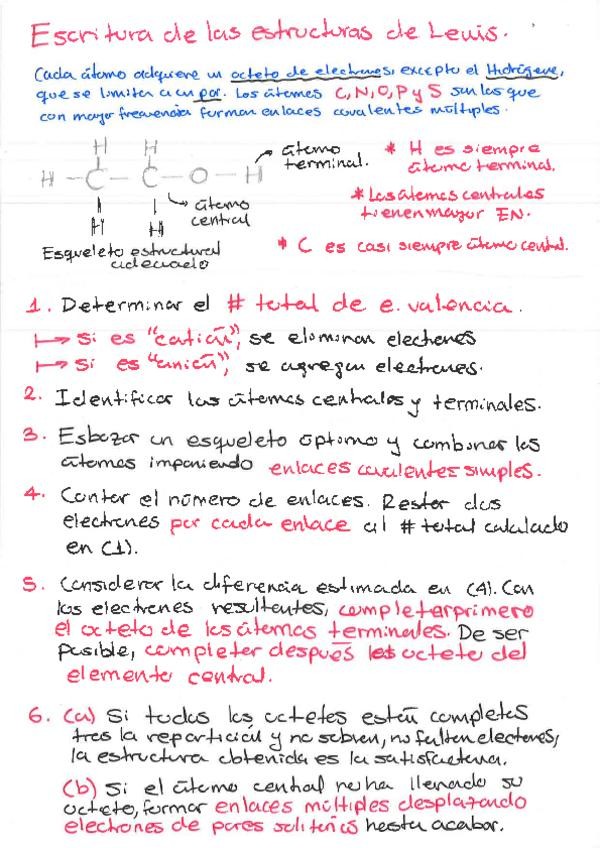 Escritura de las estructuras de Lewis.
Cada átomo adquiere un octeto de electrones, excepto el Hidrógeno,
que se limita a un par. Los átomos C, N, O, P y S son los que
con mayor frecuencia forman enlaces covalentes múltiples.
H H
H - C - C - O - H
H H
átomo
terminal.
átomo
central
Esqueleto estructural
adecuado
* H es siempre
átomo terminal.
* Los átomos centrales
tienen mayor EN.
* C es casi siempre átomo central.
1. Determinar el # total de e. valencia.
↦ Si es "catión", se eliminan electrones
↦ Si es "anión", se agregan electrones.
2. Identificar los átomos centrales y terminales.
3. Esbozar un esqueleto óptimo y combinar los
átomos imponiendo enlaces covalentes simples.
4. Contar el número de enlaces. Restar dos
electrones por cada enlace al # total calculado
en (1).
5. Considerar la diferencia estimada en (4). Con
los electrones resultantes, completar primero
el octeto de los átomos terminales. De ser
posible, completar después los octeto del
elemento central.
6. (a) Si todos los octetos están completos
tras la repartición y no sobren, no falten electrones,
la estructura obtenida es la satisfactoria.
(b) Si el átomo central no ha llenado su
octeto, formar enlaces múltiples desplazando
electrones de pares solitarios hasta acabar.